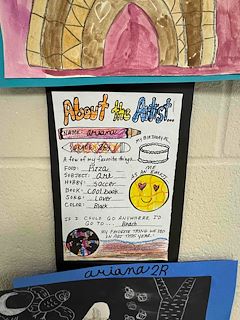 About the Artist...
NAME: ariana
MY BIRTHDAY IS
A few of my favorite things...
FOOD: Pizza
SUBJECT: art
HOBBY: soccer
BOOK: cool book
SONG: Lover
COLOR: Black
ME
AS AN EMOJI
IF I COULD GO ANYWHERE I'D
GO TO... Beach
MY FAVORITE THING WE DID
IN ART THIS YEAR:
ariana 2R